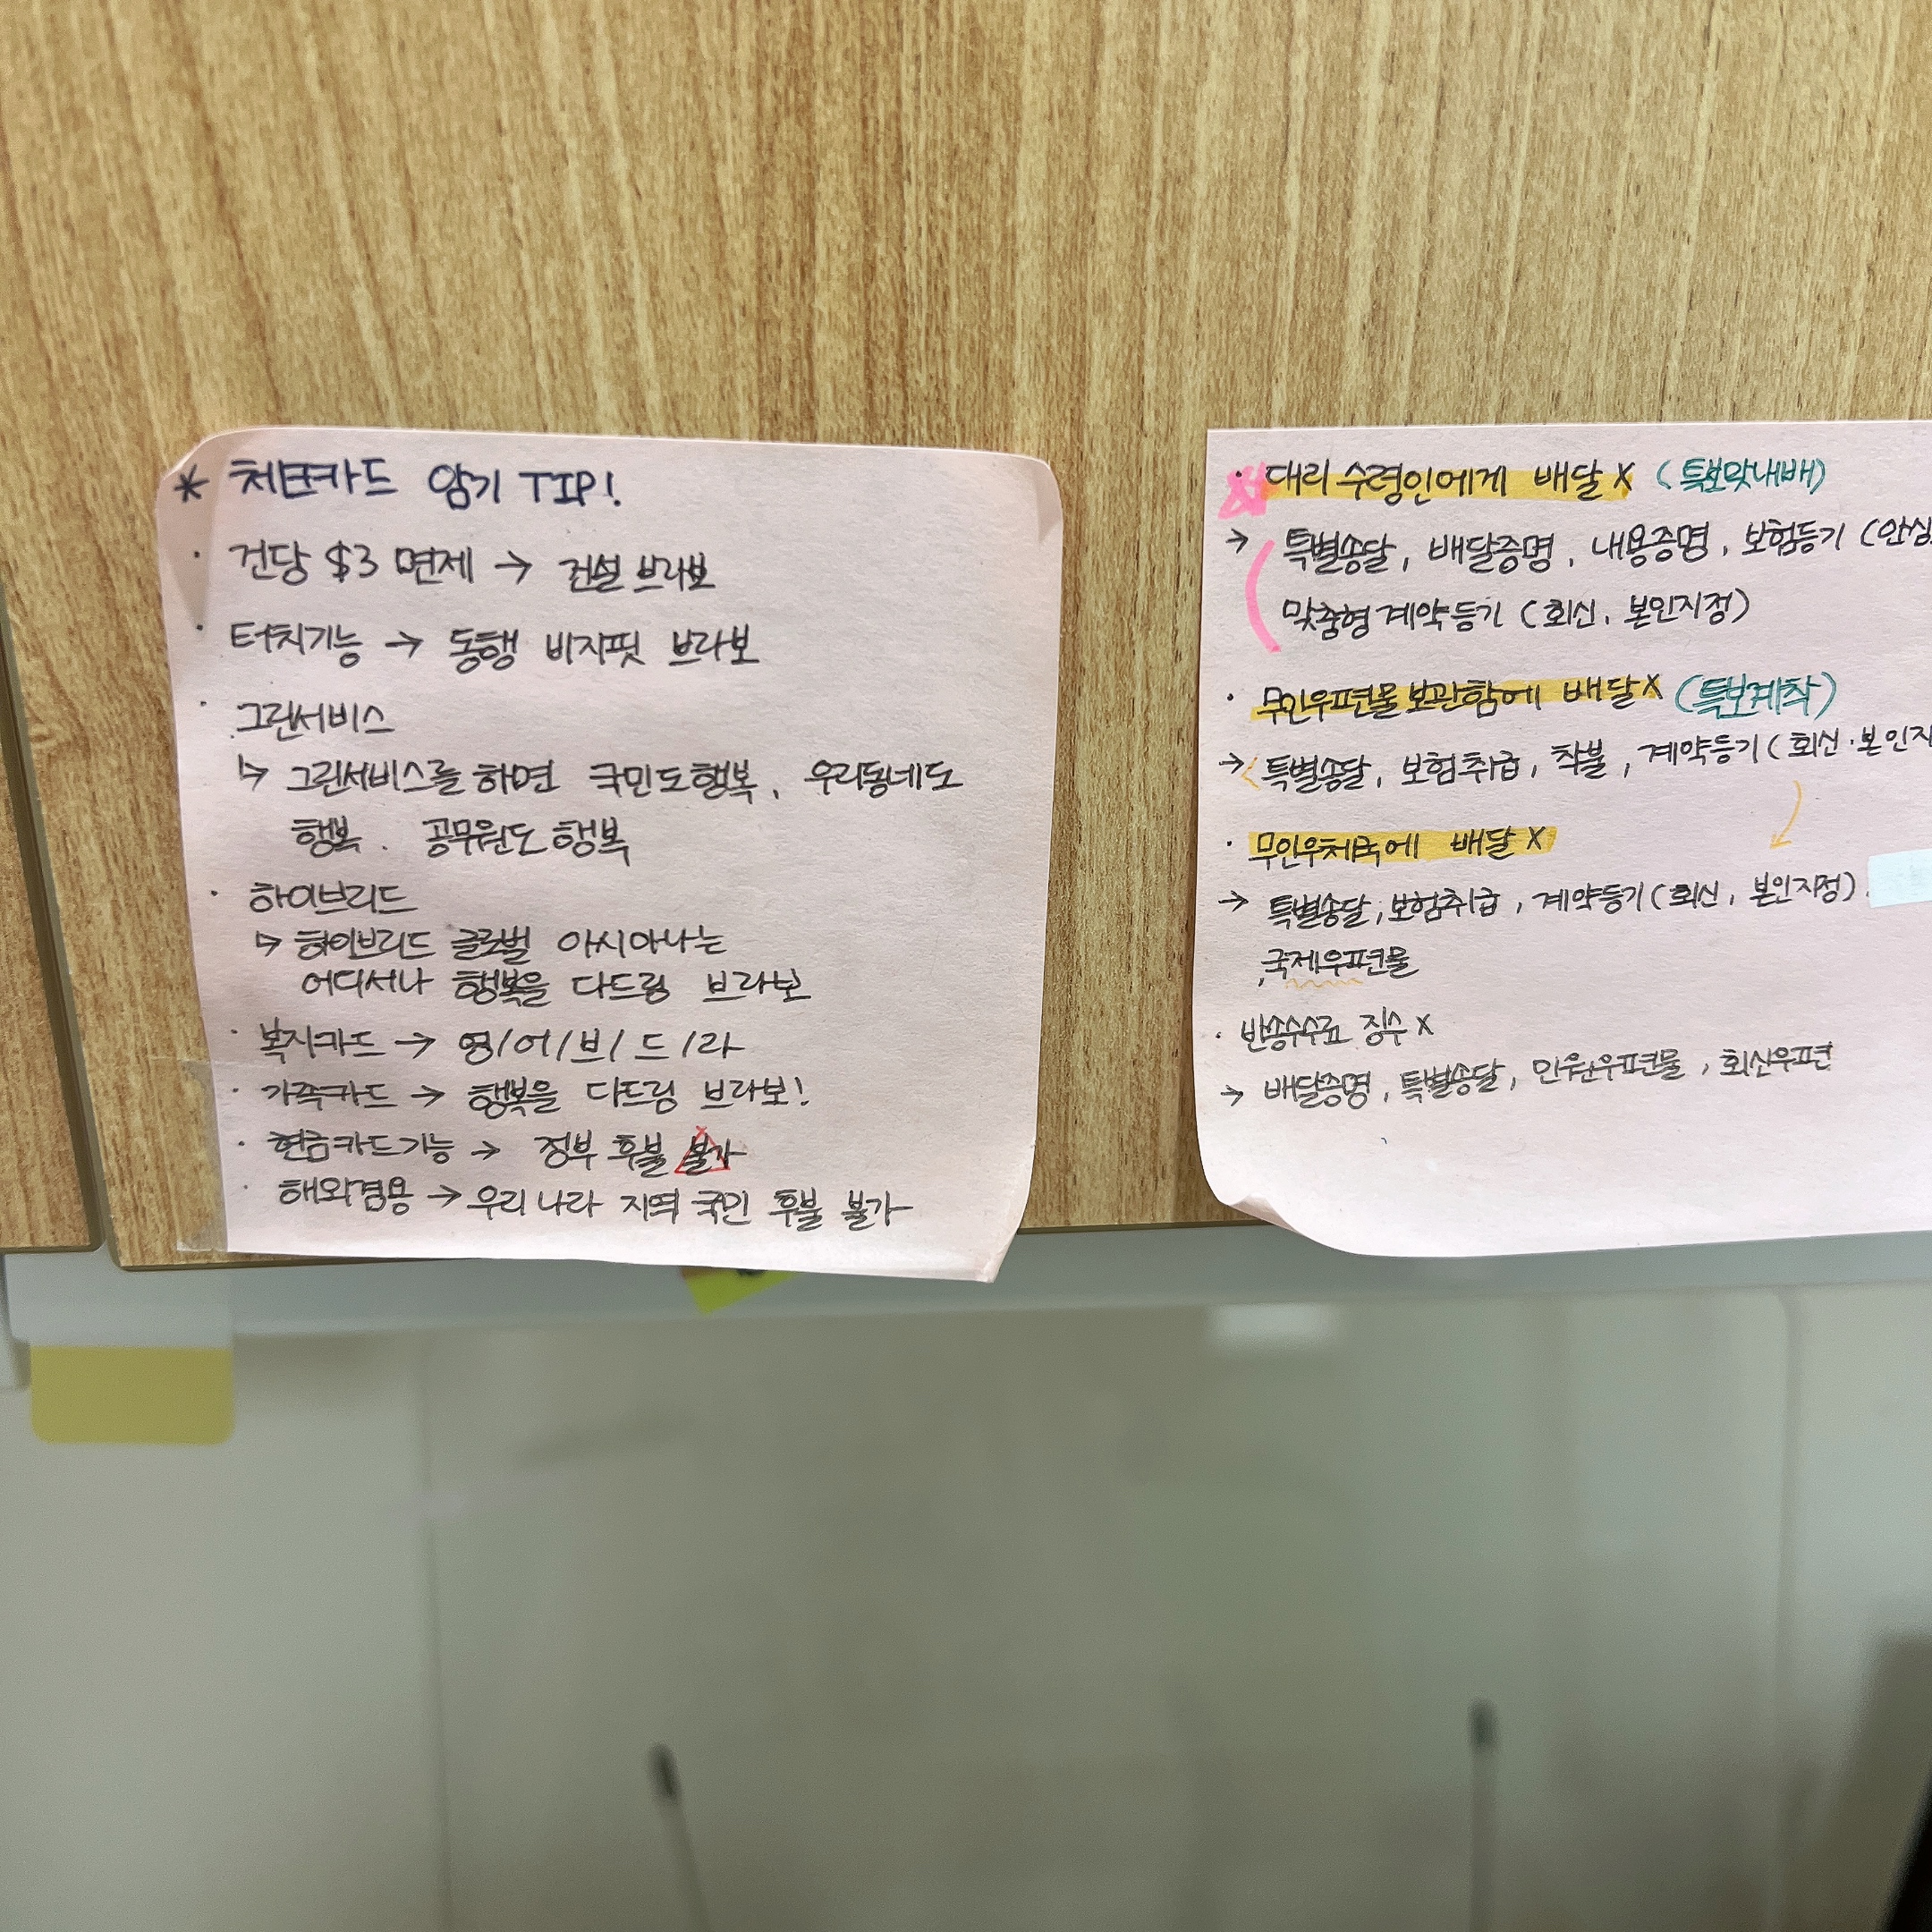 * 체크카드 암기 TIP!
· 건당 $3 면제 → 건설 브라보
· 터치기능 → 동행 비지핏 브라보
· 그린서비스
↳ 그린서비스를 하면 국민도행복, 우리동네도
행복. 공무원도 행복
· 하이브리드
↳ 하이브리드 글로벌 아시아나는
어디서나 행복을 다드림 브라보
· 복지카드 → 영/어/브/드/라
· 가족카드 → 행복을 다드림 브라보!
· 현금카드기능 → 정부 후불 불가
· 해외겸용 → 우리나라 지역 국민 후불 불가
· 대리 수령인에게 배달 X (특보맞내배)
→ 특별송달, 배달증명, 내용증명, 보험등기 (안심
맞춤형 계약등기 (회신, 본인지정)
· 무인우편물 보관함에 배달 X (특보계착)
→ 특별송달, 보험취급, 착불, 계약등기 (회신·본인지
· 무인우체국에 배달 X
→ 특별송달, 보험취급, 계약등기 (회신, 본인지정)
, 국제우편물
· 반송수수료 징수 X
→ 배달증명, 특별송달, 민원우편물, 회신우편